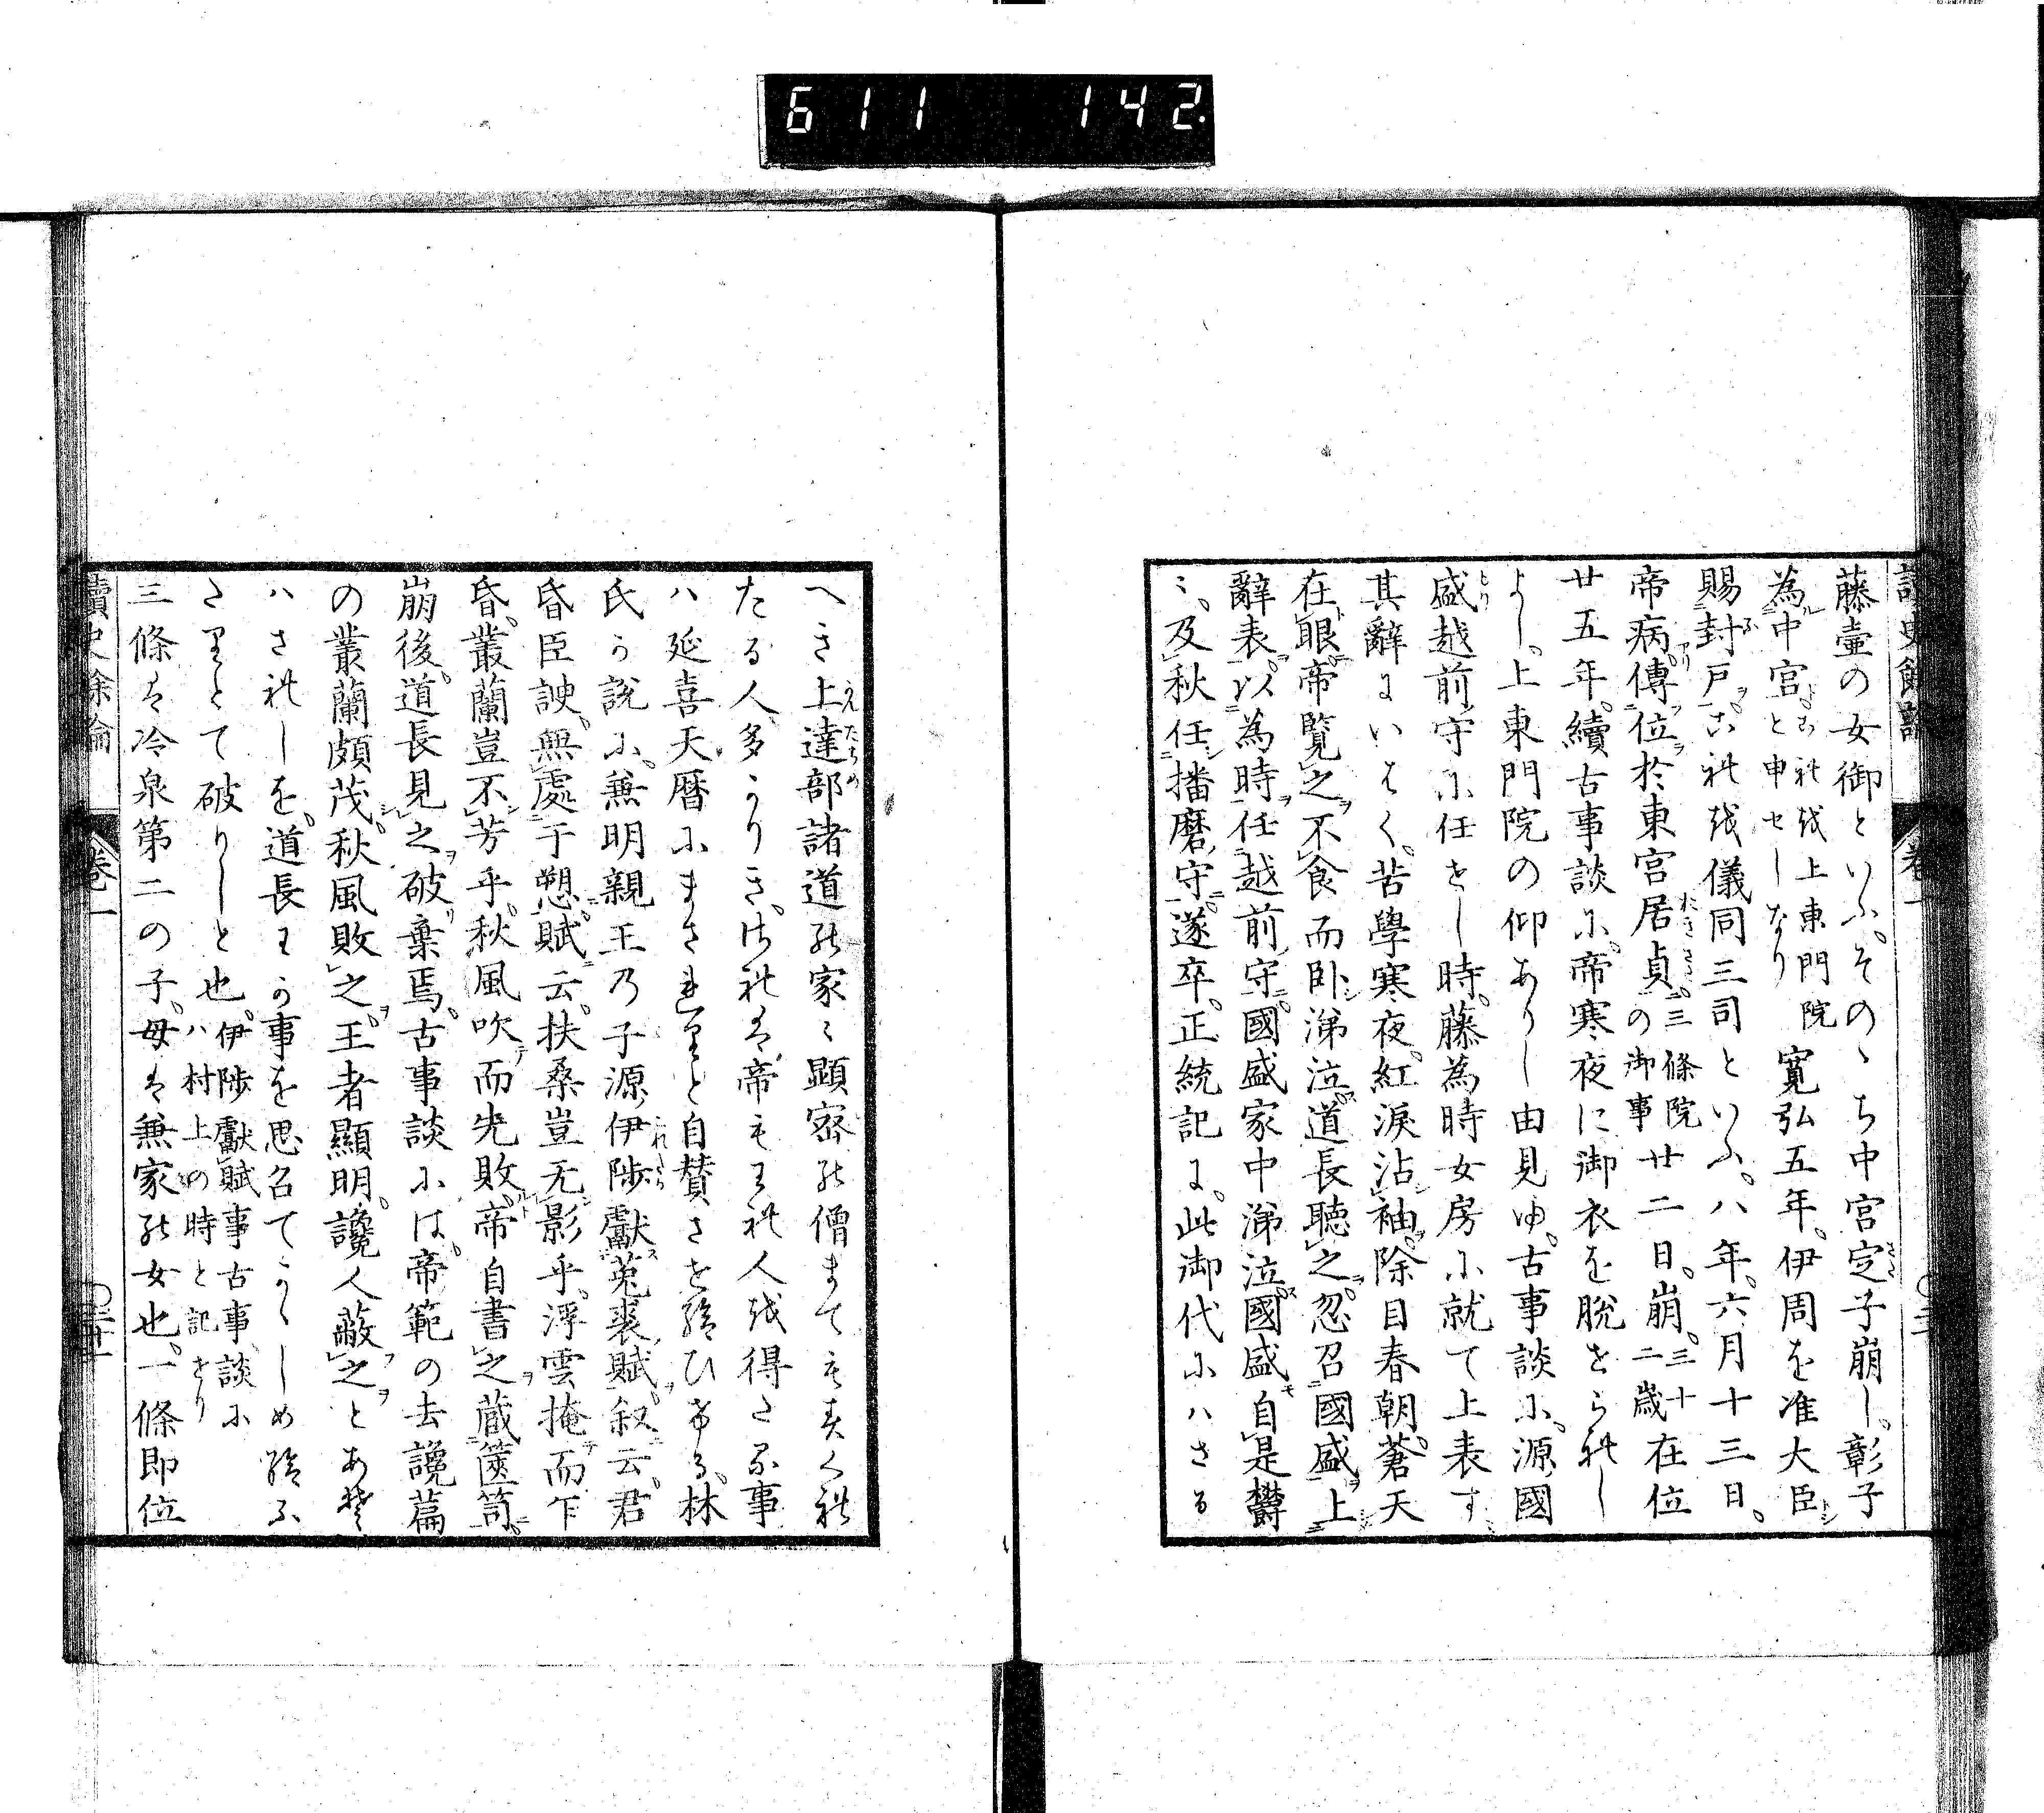 611 142.
讀史餘論 卷一
藤壷の女御といふ。そのゝち中宮定子崩し。彰子
為中宮。これ越上東門院と申せしなり 寛弘五年。伊周を准大臣
賜封戸。これ越儀同三司といふ。八年。六月十三日。
帝病。傳位於東宮居貞。三條院の御事 廿二日。崩。三十二歳在位
廿五年。續古事談に。帝寒夜に御衣を脱せられし
よし。上東門院の仰ありし由見ゆ。古事談に。源國
盛越前守に任せし時。藤為時女房に就て上表す
其辭にいはく。苦學寒夜。紅淚沾袖。除目春朝。蒼天
在眼。帝覽之。不食而臥涕泣。道長聴之。忽召國盛。上
辭表。以為時任越前守。國盛家中涕泣。國盛自是欝
〻。及秋任播磨守。遂卒。正統記に。此御代にハさる
へき上達部諸道の家〻顯密の僧まても春くれ
たる人多かりき。されは帝もわれ人越得たる事
ハ延喜天暦にまされりと自賛させ給ひける。林
氏か説に。兼明親王乃子源伊陟獻莵裘賦叙云。君
昏臣諛。無處于愬。賦云。扶桑豈无影乎。浮雲掩而乍
昏。叢蘭豈不芳乎。秋風吹而先敗。帝自書之。蔵篋笥。
崩後。道長見之。破棄焉。古事談には帝範の去讒篇
の叢蘭頗茂。秋風敗之。王者顯明。讒人蔽之とあそ
ハされしを。道長わか事を思召てかくしめ給ふ
さりとて破りしと也。伊陟獻賦事古事談にハ村上の時と記せり
三條は冷泉第二の子。母は兼家の女也。一條即位
讀史餘論 卷一 〇三十一